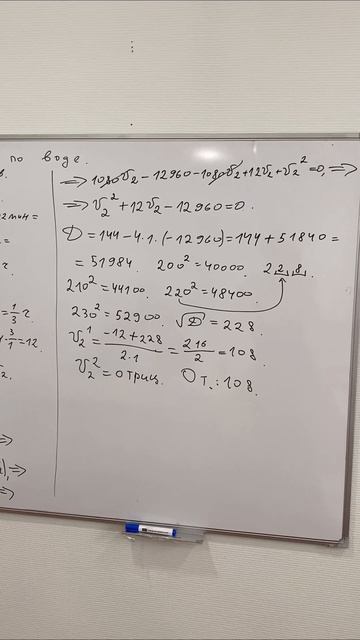 по воде.
в.
⇒ 1080v₂ − 12960 − 1080v₂ + 12v₂ + v₂² = 0, ⇒
⇒ v₂² + 12v₂ − 12960 = 0.
2 мин =
D = 144 − 4·1·(−12960) = 144 + 51840 =
= 51984. 200² = 40000. 2 2, 8,
210² = 44100. 220² = 48400.
230² = 52900. √D = 228.
= 1/3 ч
v₂¹ = (−12 + 228)/(2·1) = 216/2 = 108
· 3/1 = 12.
v₂² = отриц. От.: 108.
⇒
), ⇒
⇒